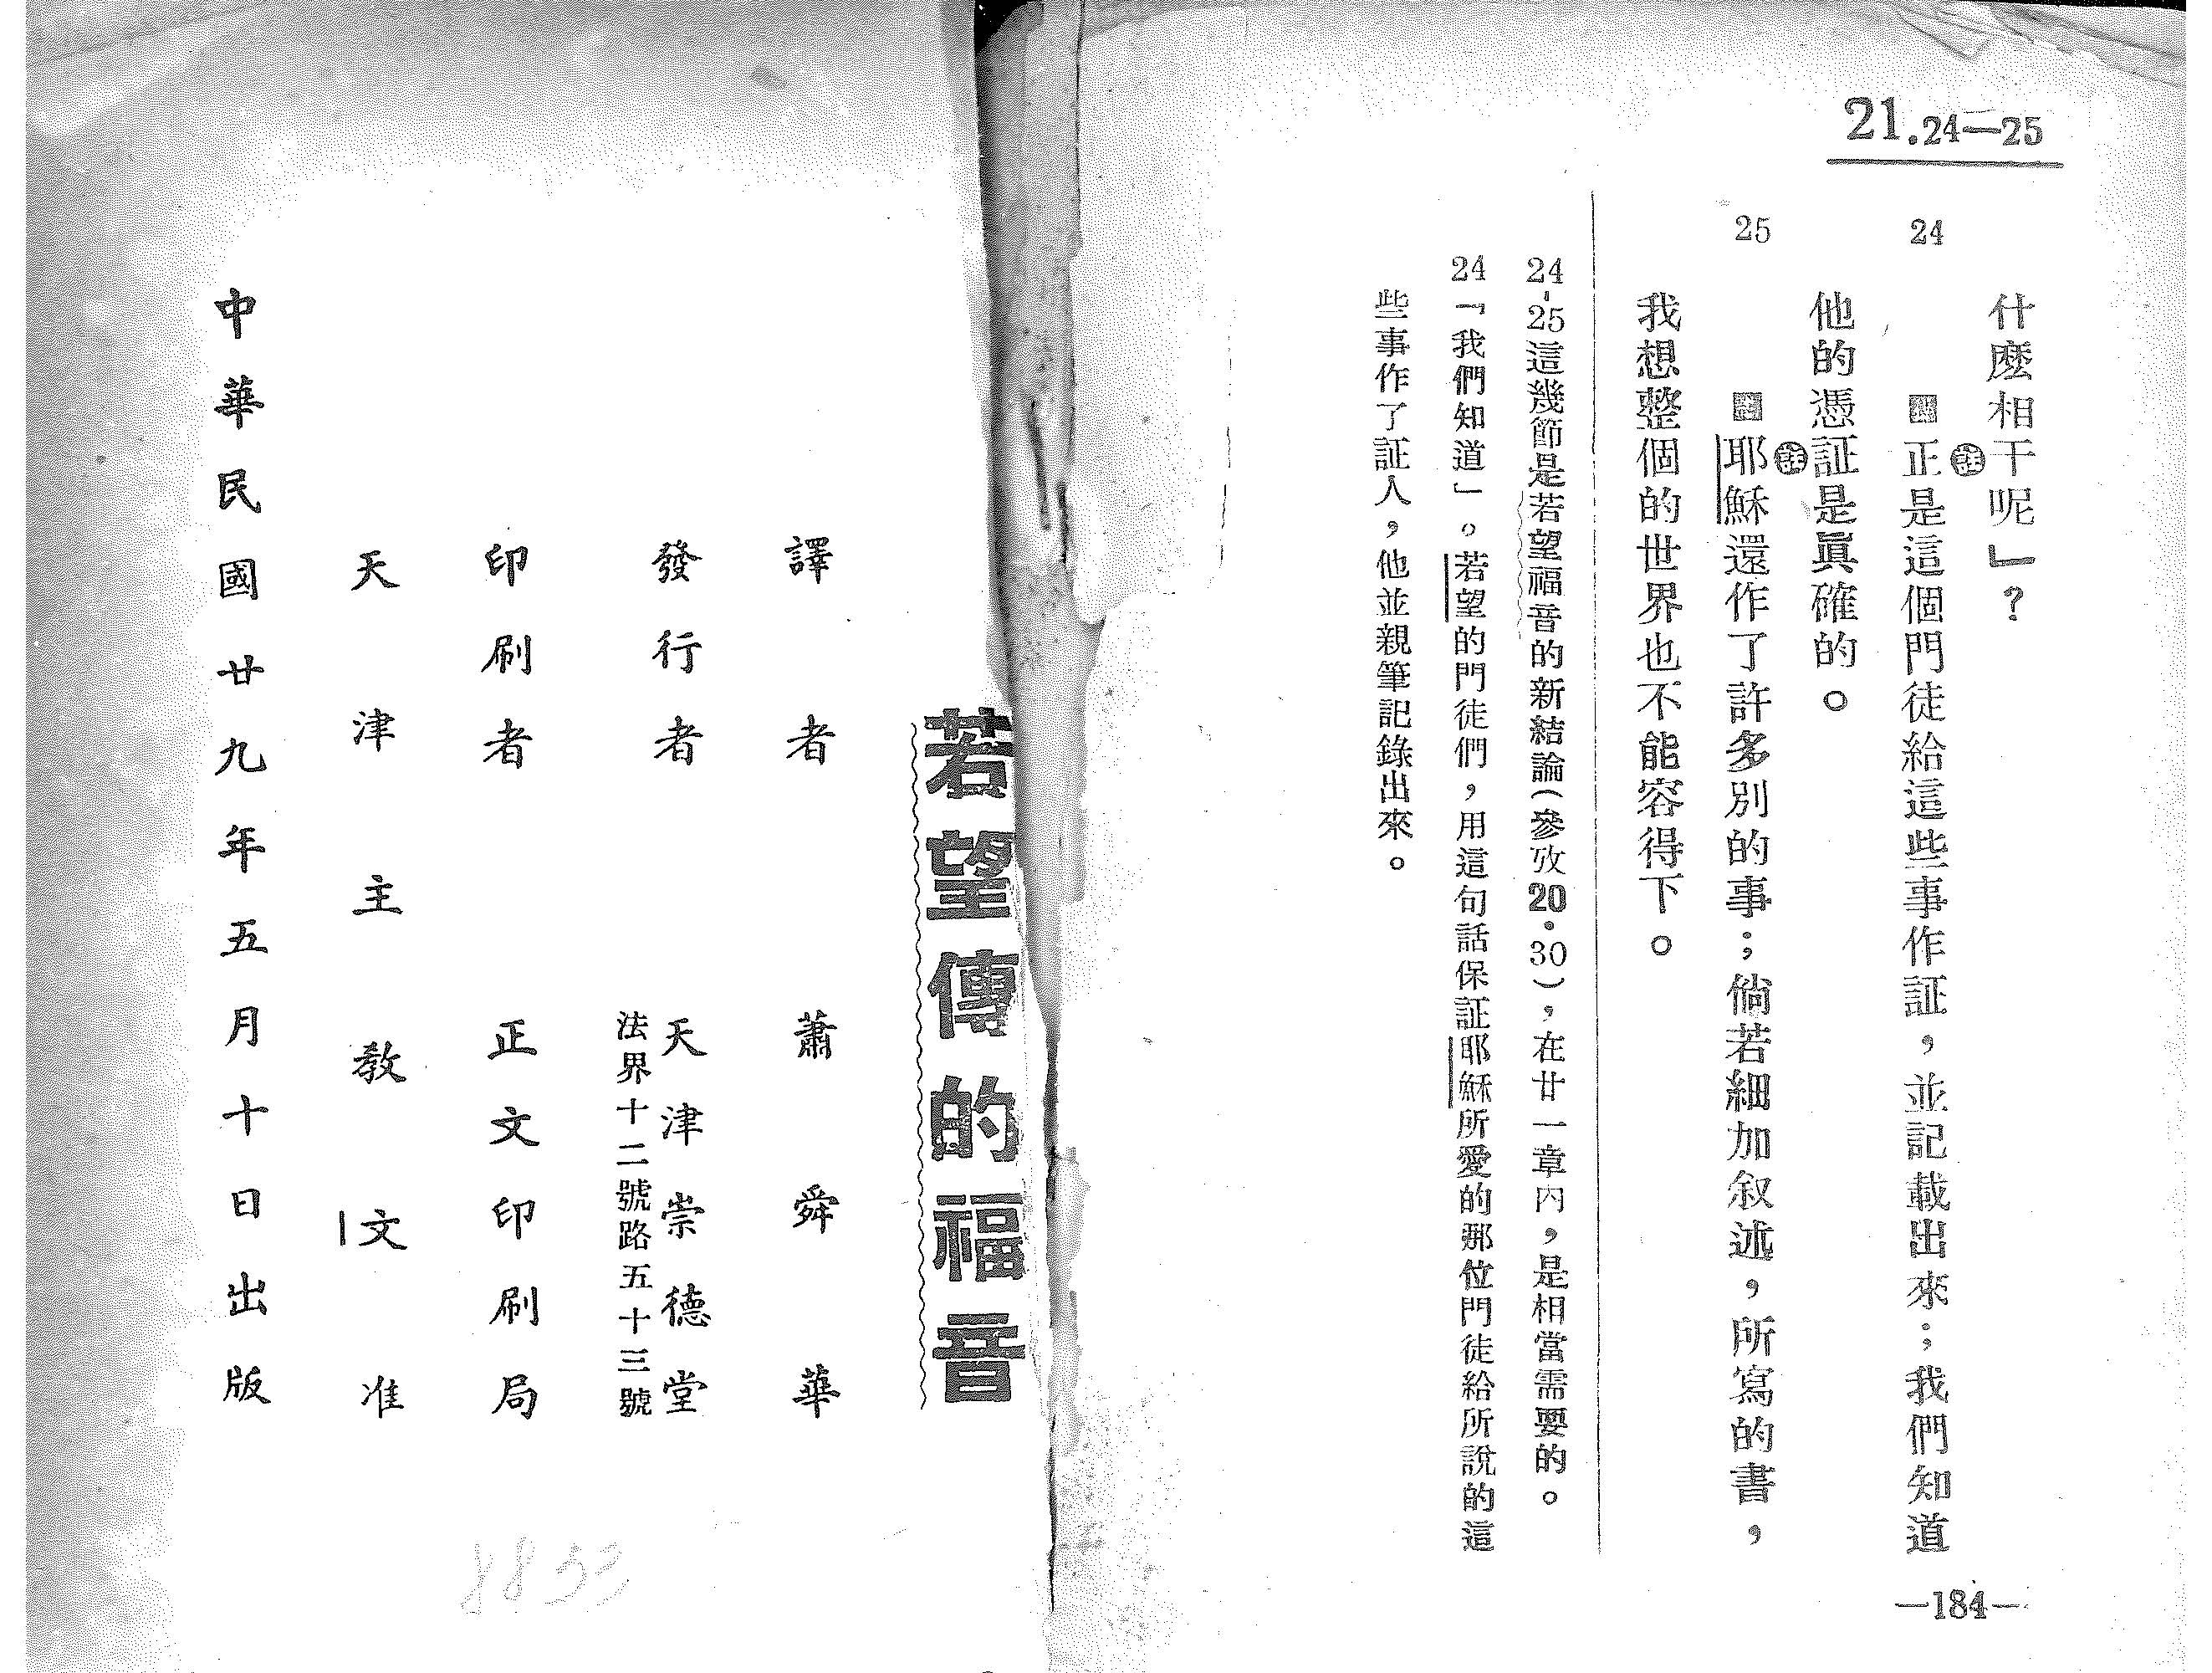 21.24—25
什麼相干呢」?
24
註
正是這個門徒給這些事作証,並記載出來;我們知道
他的憑証是眞確的。
25
註
耶穌還作了許多別的事;倘若細加叙述,所寫的書,
我想整個的世界也不能容得下。
24-25這幾節是若望福音的新結論(參攷20.30),在廿一章內,是相當需要的。
24「我們知道」。若望的門徒們,用這句話保証耶穌所愛的那位門徒給所說的這
些事作了証人,他並親筆記錄出來。
—184—
若望傳的福音
譯者 蕭舜華
發行者 天津崇德堂
法界十二號路五十三號
印刷者 正文印刷局
天津主教文准
中華民國廿九年五月十日出版